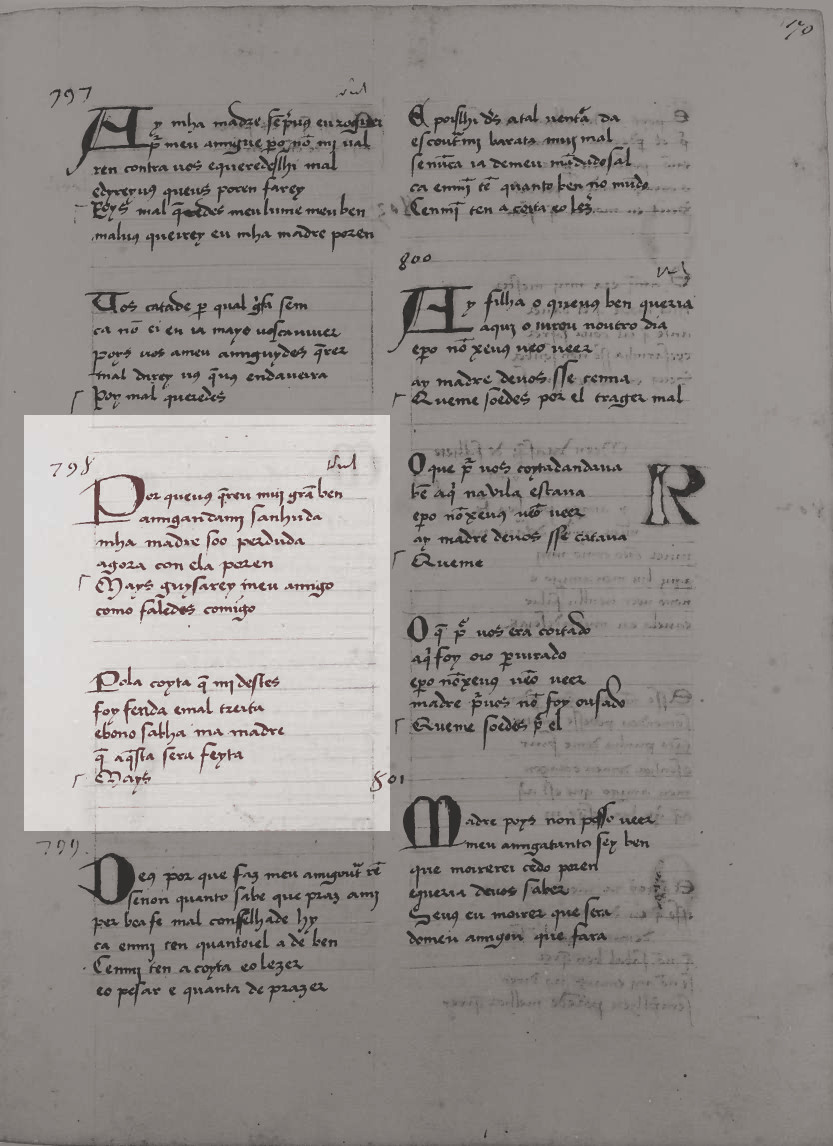 170
797
Ay mha madre
meu amigue nō mi ual
ren contra uos mal
edireyuꝯ queuꝯ poren farey
Poys mal q̄redes meu lume meu ben
maluꝯ querrey eu mha madre poren
Uos catade ꝑ qual sem
ca nō ei eu ia mays
poys uos ameu amiguydes q̄rer
mal direy uꝯ q̄uꝯ
Poy mal queredes
798
Por queuꝯ q̄reu mui grā ben
amigandami sanhuda
mha madre soo perduda
agora con ela poren
Mays guysarey meu amigo
como faledes comigo
Pola coyta q̄ mi destes
foy ferida emal treita
ebeno sabha ma madre
q̄ aq̄sta sera feyta
Mays
799
Deꝯ por que faz meu
senon quanto sabe que praz ami
per mal conselhade hy
ca enmi ten ben
Cenmi ten a coyta eo lezer
eo pesar e quanta de prazer
E poislhi dꝰ atal da
barata mui mal
ca enmi tē quanto ben no mūdo
Cenmī ten a coyta eo
800
Ay filha o queuꝯ ben queria
aqui o iurou noutro dia
epo nō xeuꝯ ueō ueer
ay madre deuos sse temia
Queme soedes por el trager mal
O que uos coytadandaua
bē aq̄ na uila estaua
epo nō xeuꝯ ueō ueer
ay madre deuos sse cataua
Queme
O q̄ uos era coitado
aq̄ foy oio
epo nō xeuꝯ ueō ueer
madre nō foy ousado
Queme soedes p̄ el
R
801
Madre poys non posso ueer
meu amigatanto sey ben
que morrerei cedo poren
equeria deuos saber
Seuꝯ eu morrer que sera
domeu amigou que fara